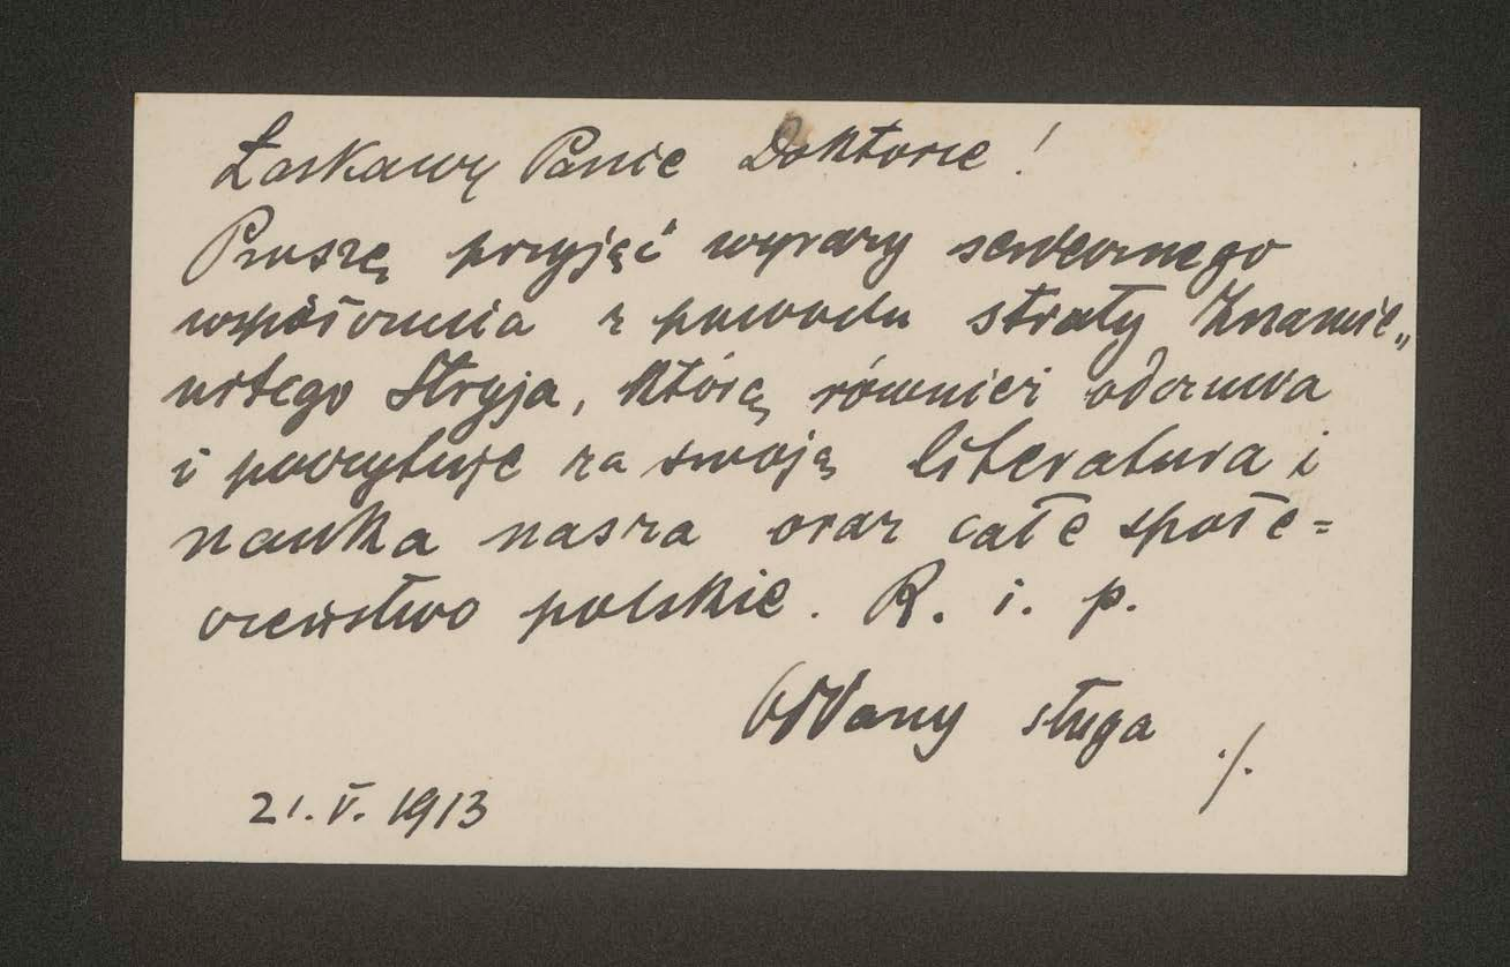 Łaskawy Panie Doktorze!
Proszę przyjąć wyrazy serdecznego
współczucia z powodu straty Znamie„
nitego Stryja, którą również odczuwa
i poczytuje za swoją literatura i
nauka nasza oraz całe społe=
czeństwo polskie. R. i. p.
Oddany sługa ./.
21. V. 1913